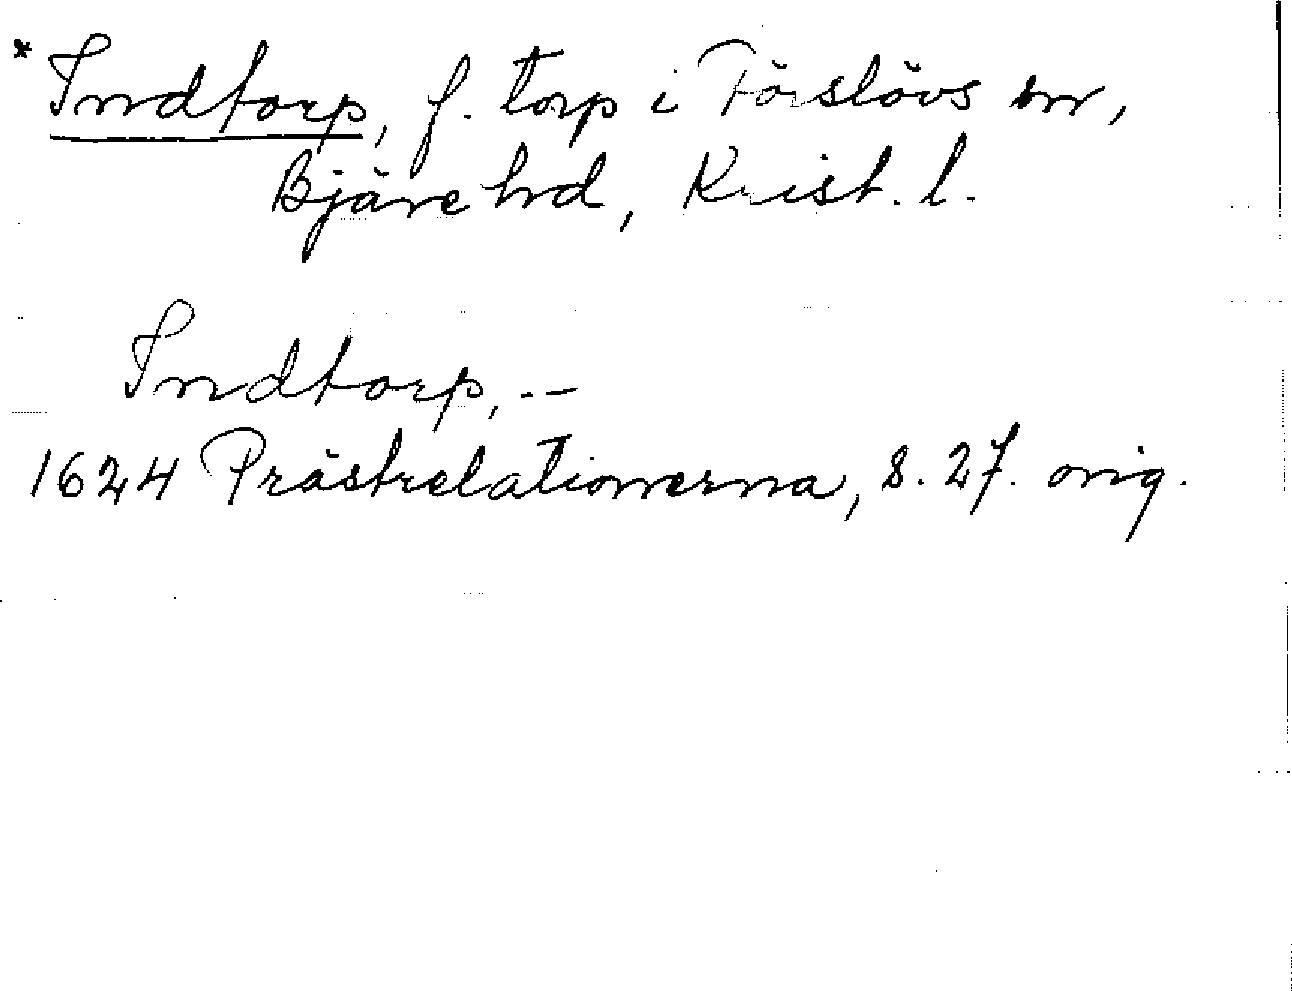 * Indtorp, f. torp i Förslövs sn,
Bjäre hd, Krist. l.
Indtorp, --
1624 Prästrelationerna, s. 27. orig.